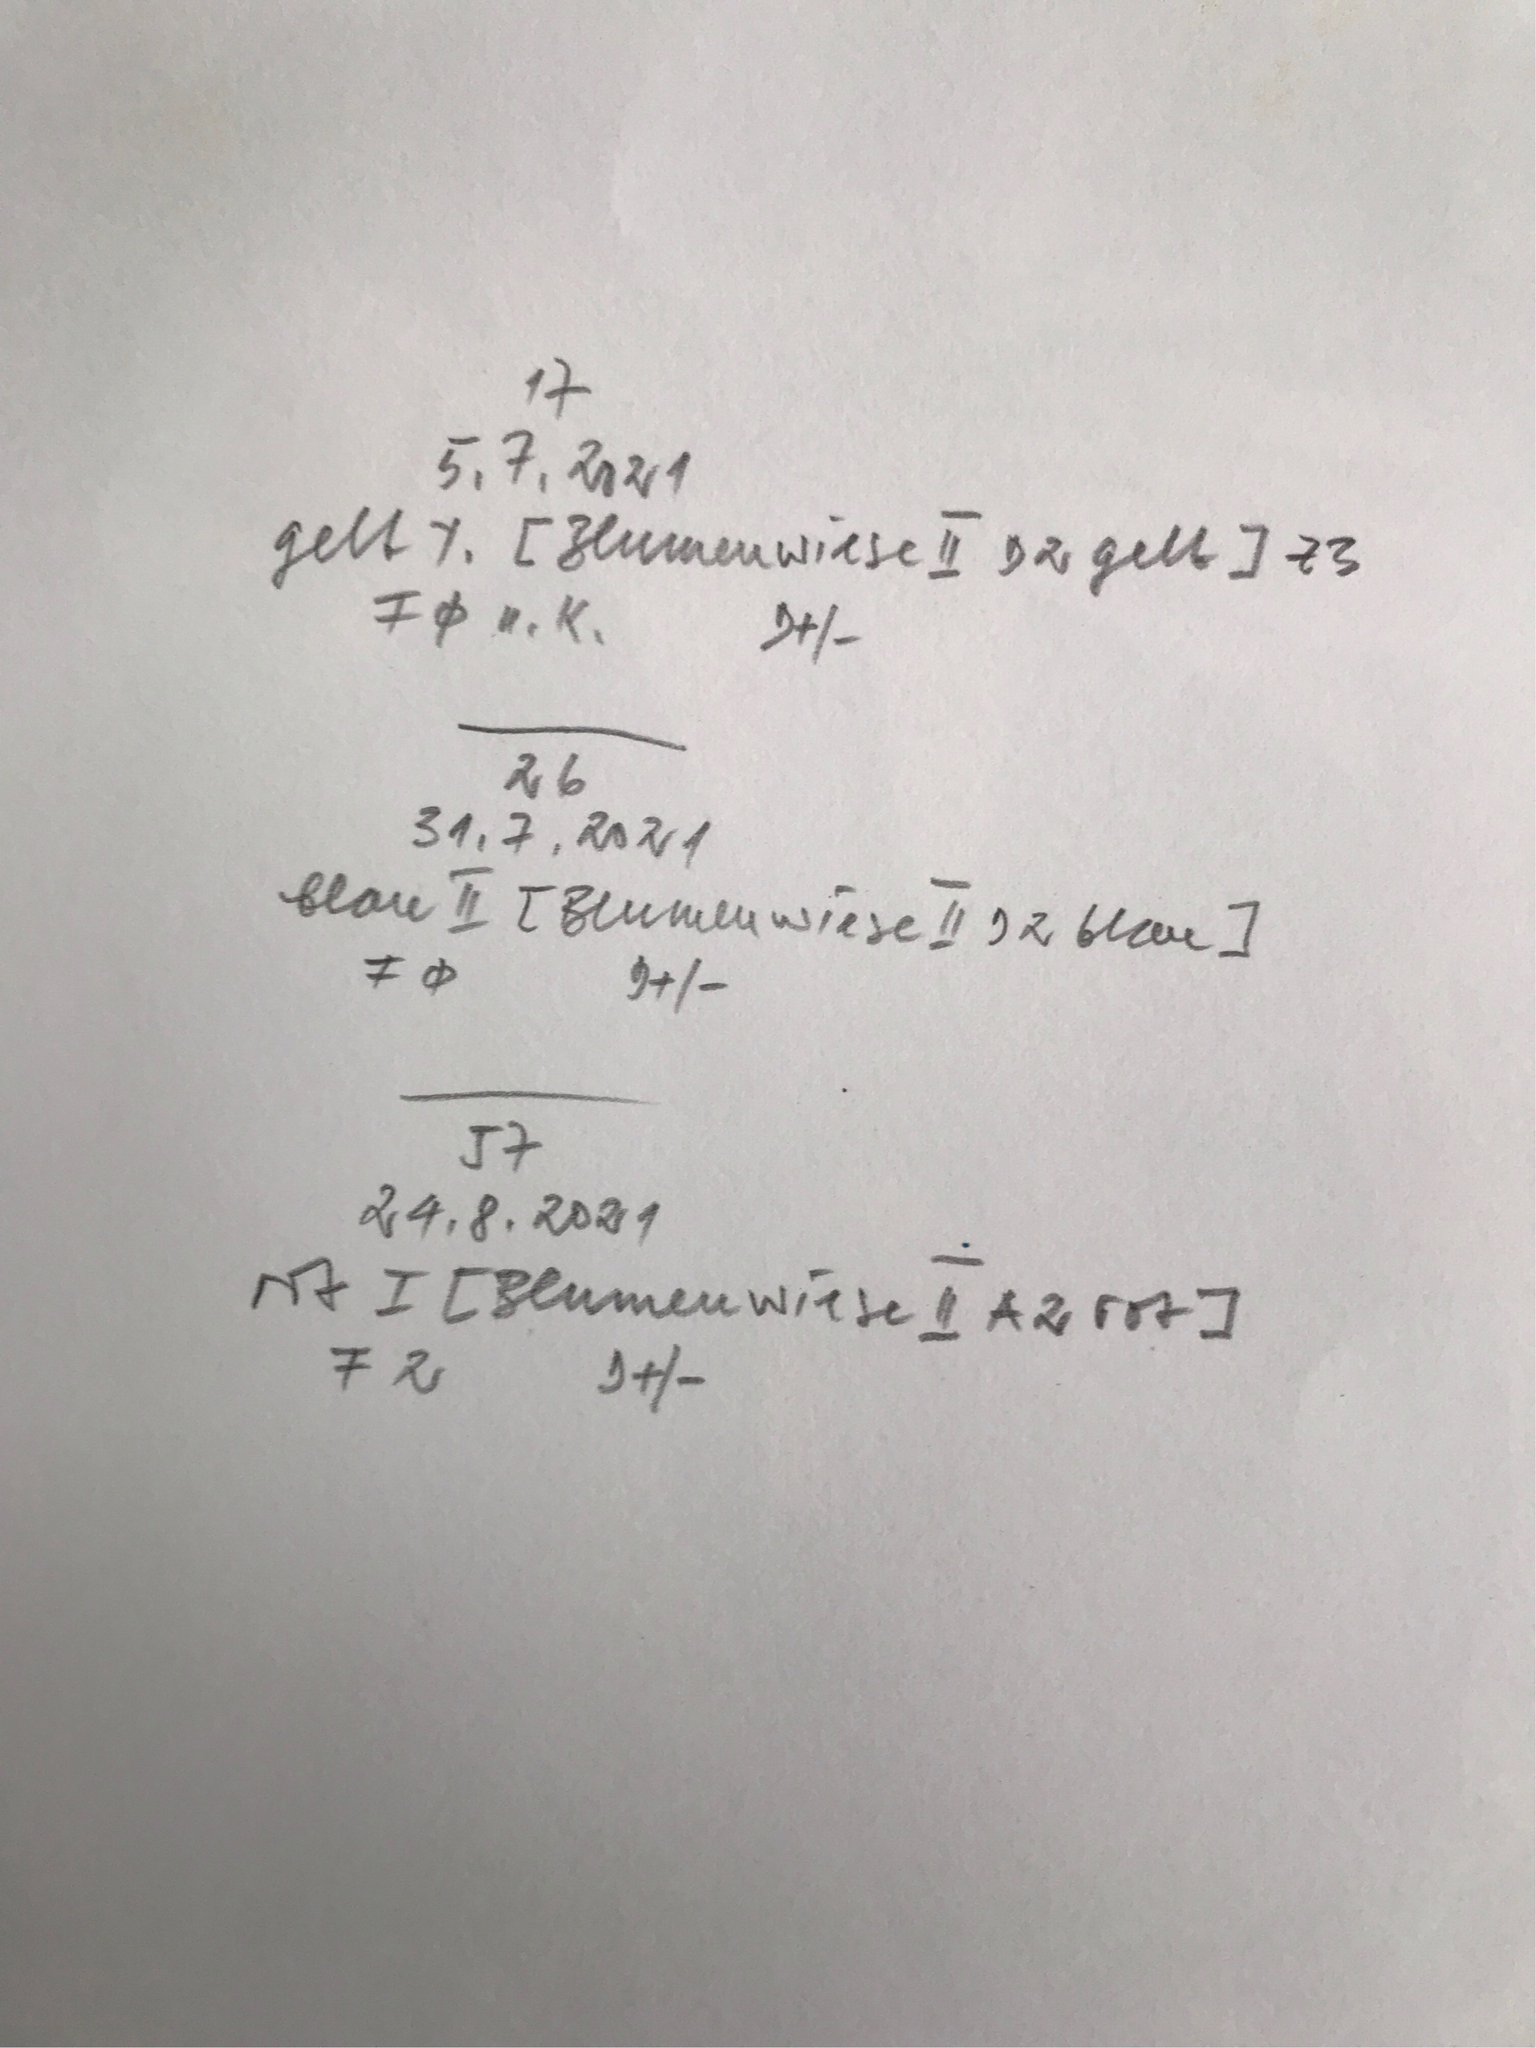 17
5.7.2021
gelb Y. [Blumenwiese II D2 gelb] Z3
F ø n.K. D+/-
26
31.7.2021
blau II [Blumenwiese II D2 blau]
F ø D+/-
57
24.8.2021
rot I [Blumenwiese II A2 rot]
F 2 D+/-